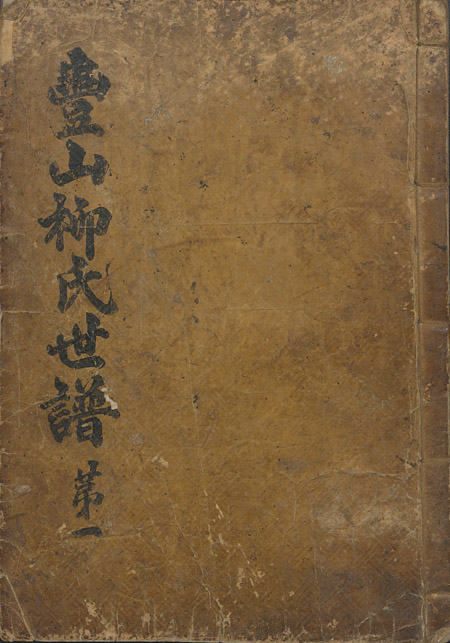 豊山柳氏世譜 苐一